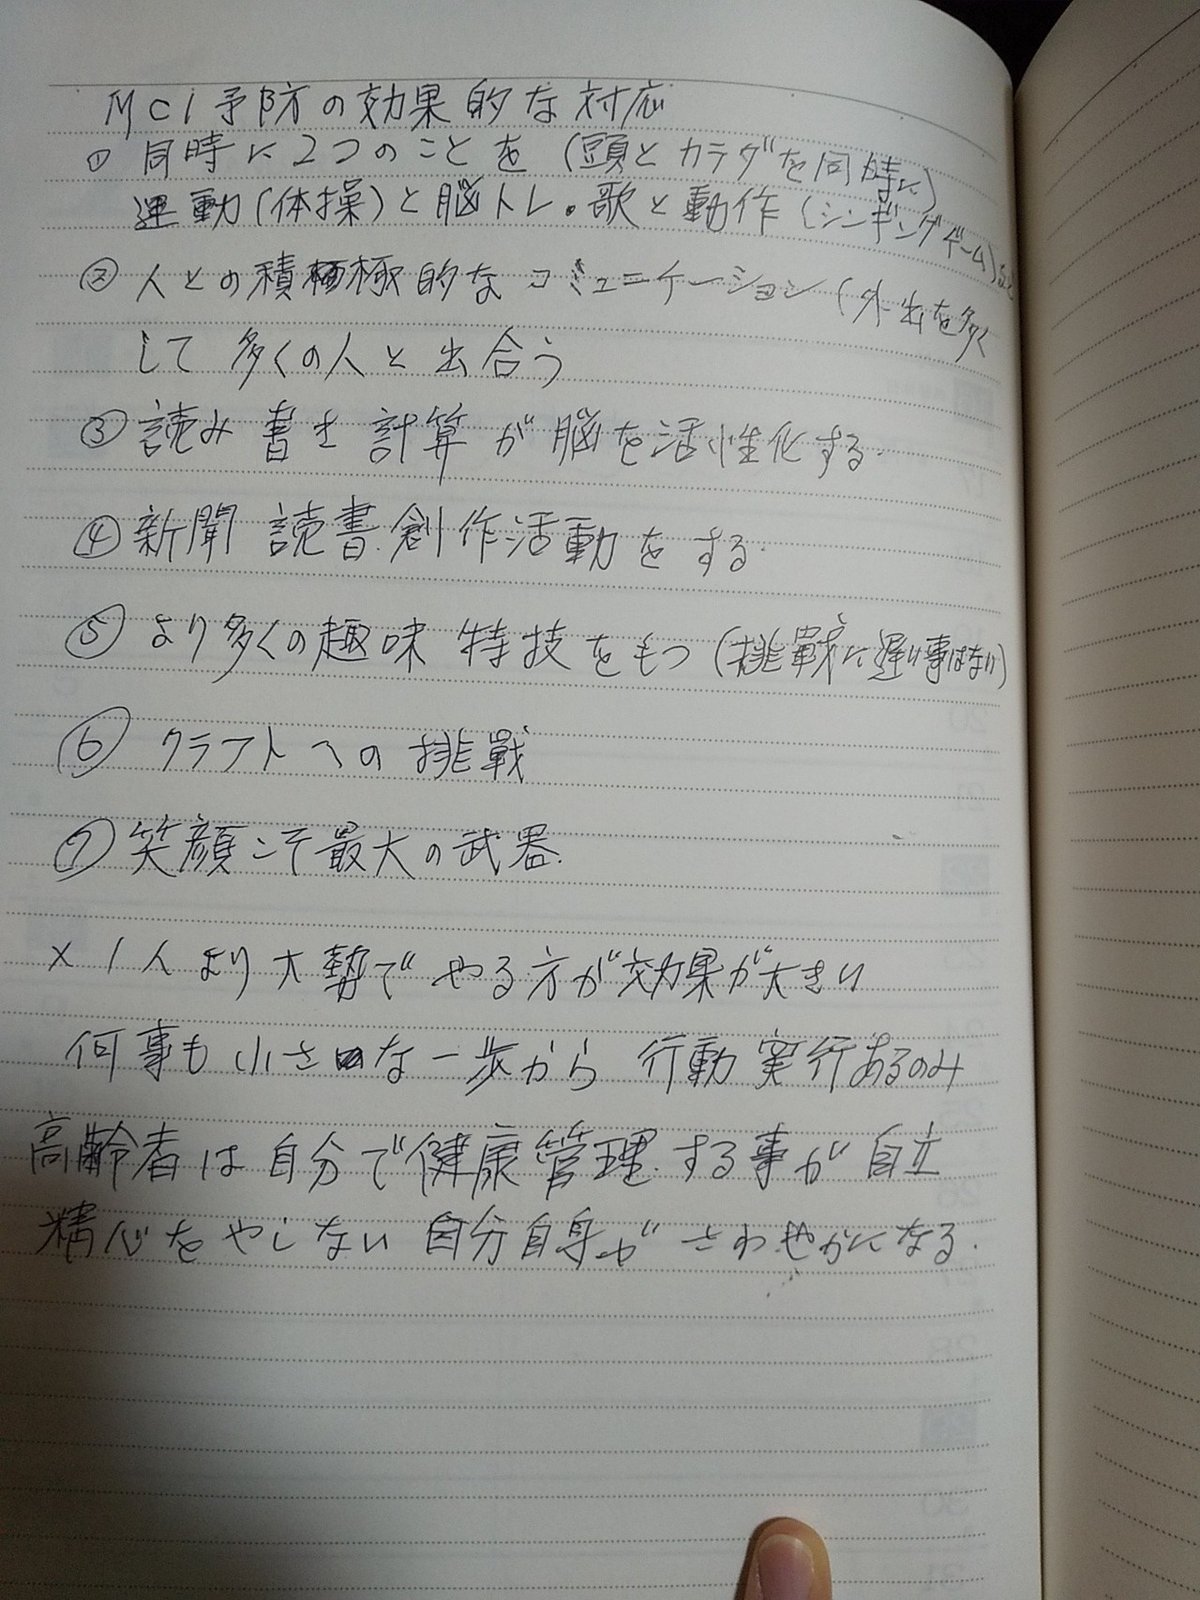 MCI予防の効果的な対応
① 同時に2つのことを (頭とカラダを同時に)
運動(体操)と脳トレ。歌と動作 (シンギングゲーム)など
② 人との積極的な コミュニケーション (外出を多く
して 多くの人と出合う
③ 読み書き計算が脳を活性化する.
④ 新聞 読書.創作活動をする.
⑤ より多くの趣味 特技をもつ (挑戦に遅い事はない)
⑥ クラフトへの挑戦
⑦ 笑顔こそ最大の武器.
× 1人より大勢でやる方が効果が大きい
何事も小さな一歩から 行動 実行あるのみ
高齢者は自分で健康管理.する事が自立
精心をやしない 自分自身がさわやかになる.